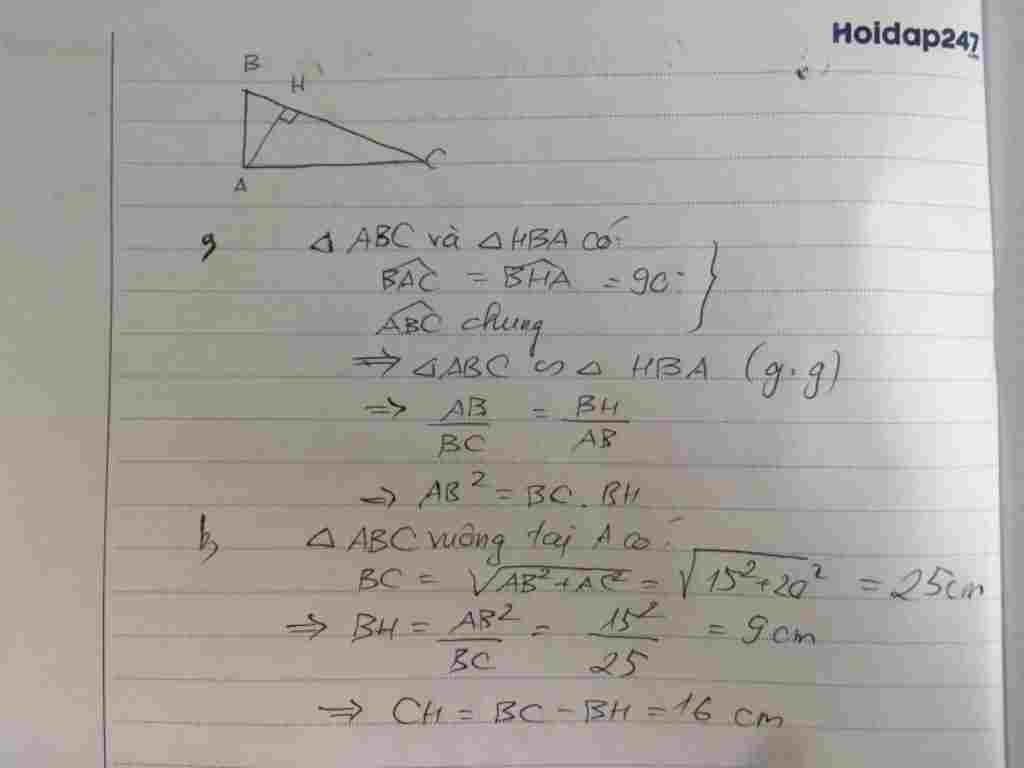 Hoidap247
B
H
A
C
a,
△ ABC và △ HBA có:
BAC = BHA = 90°
ABC chung
⇒ △ABC ∽ △ HBA (g.g)
⇒ AB/BC = BH/AB
⇒ AB² = BC . BH
b,
△ ABC vuông tại A có:
BC = √(AB²+AC²) = √(15²+20²) = 25cm
⇒ BH = AB²/BC = 15²/25 = 9cm
⇒ CH = BC - BH = 16 cm